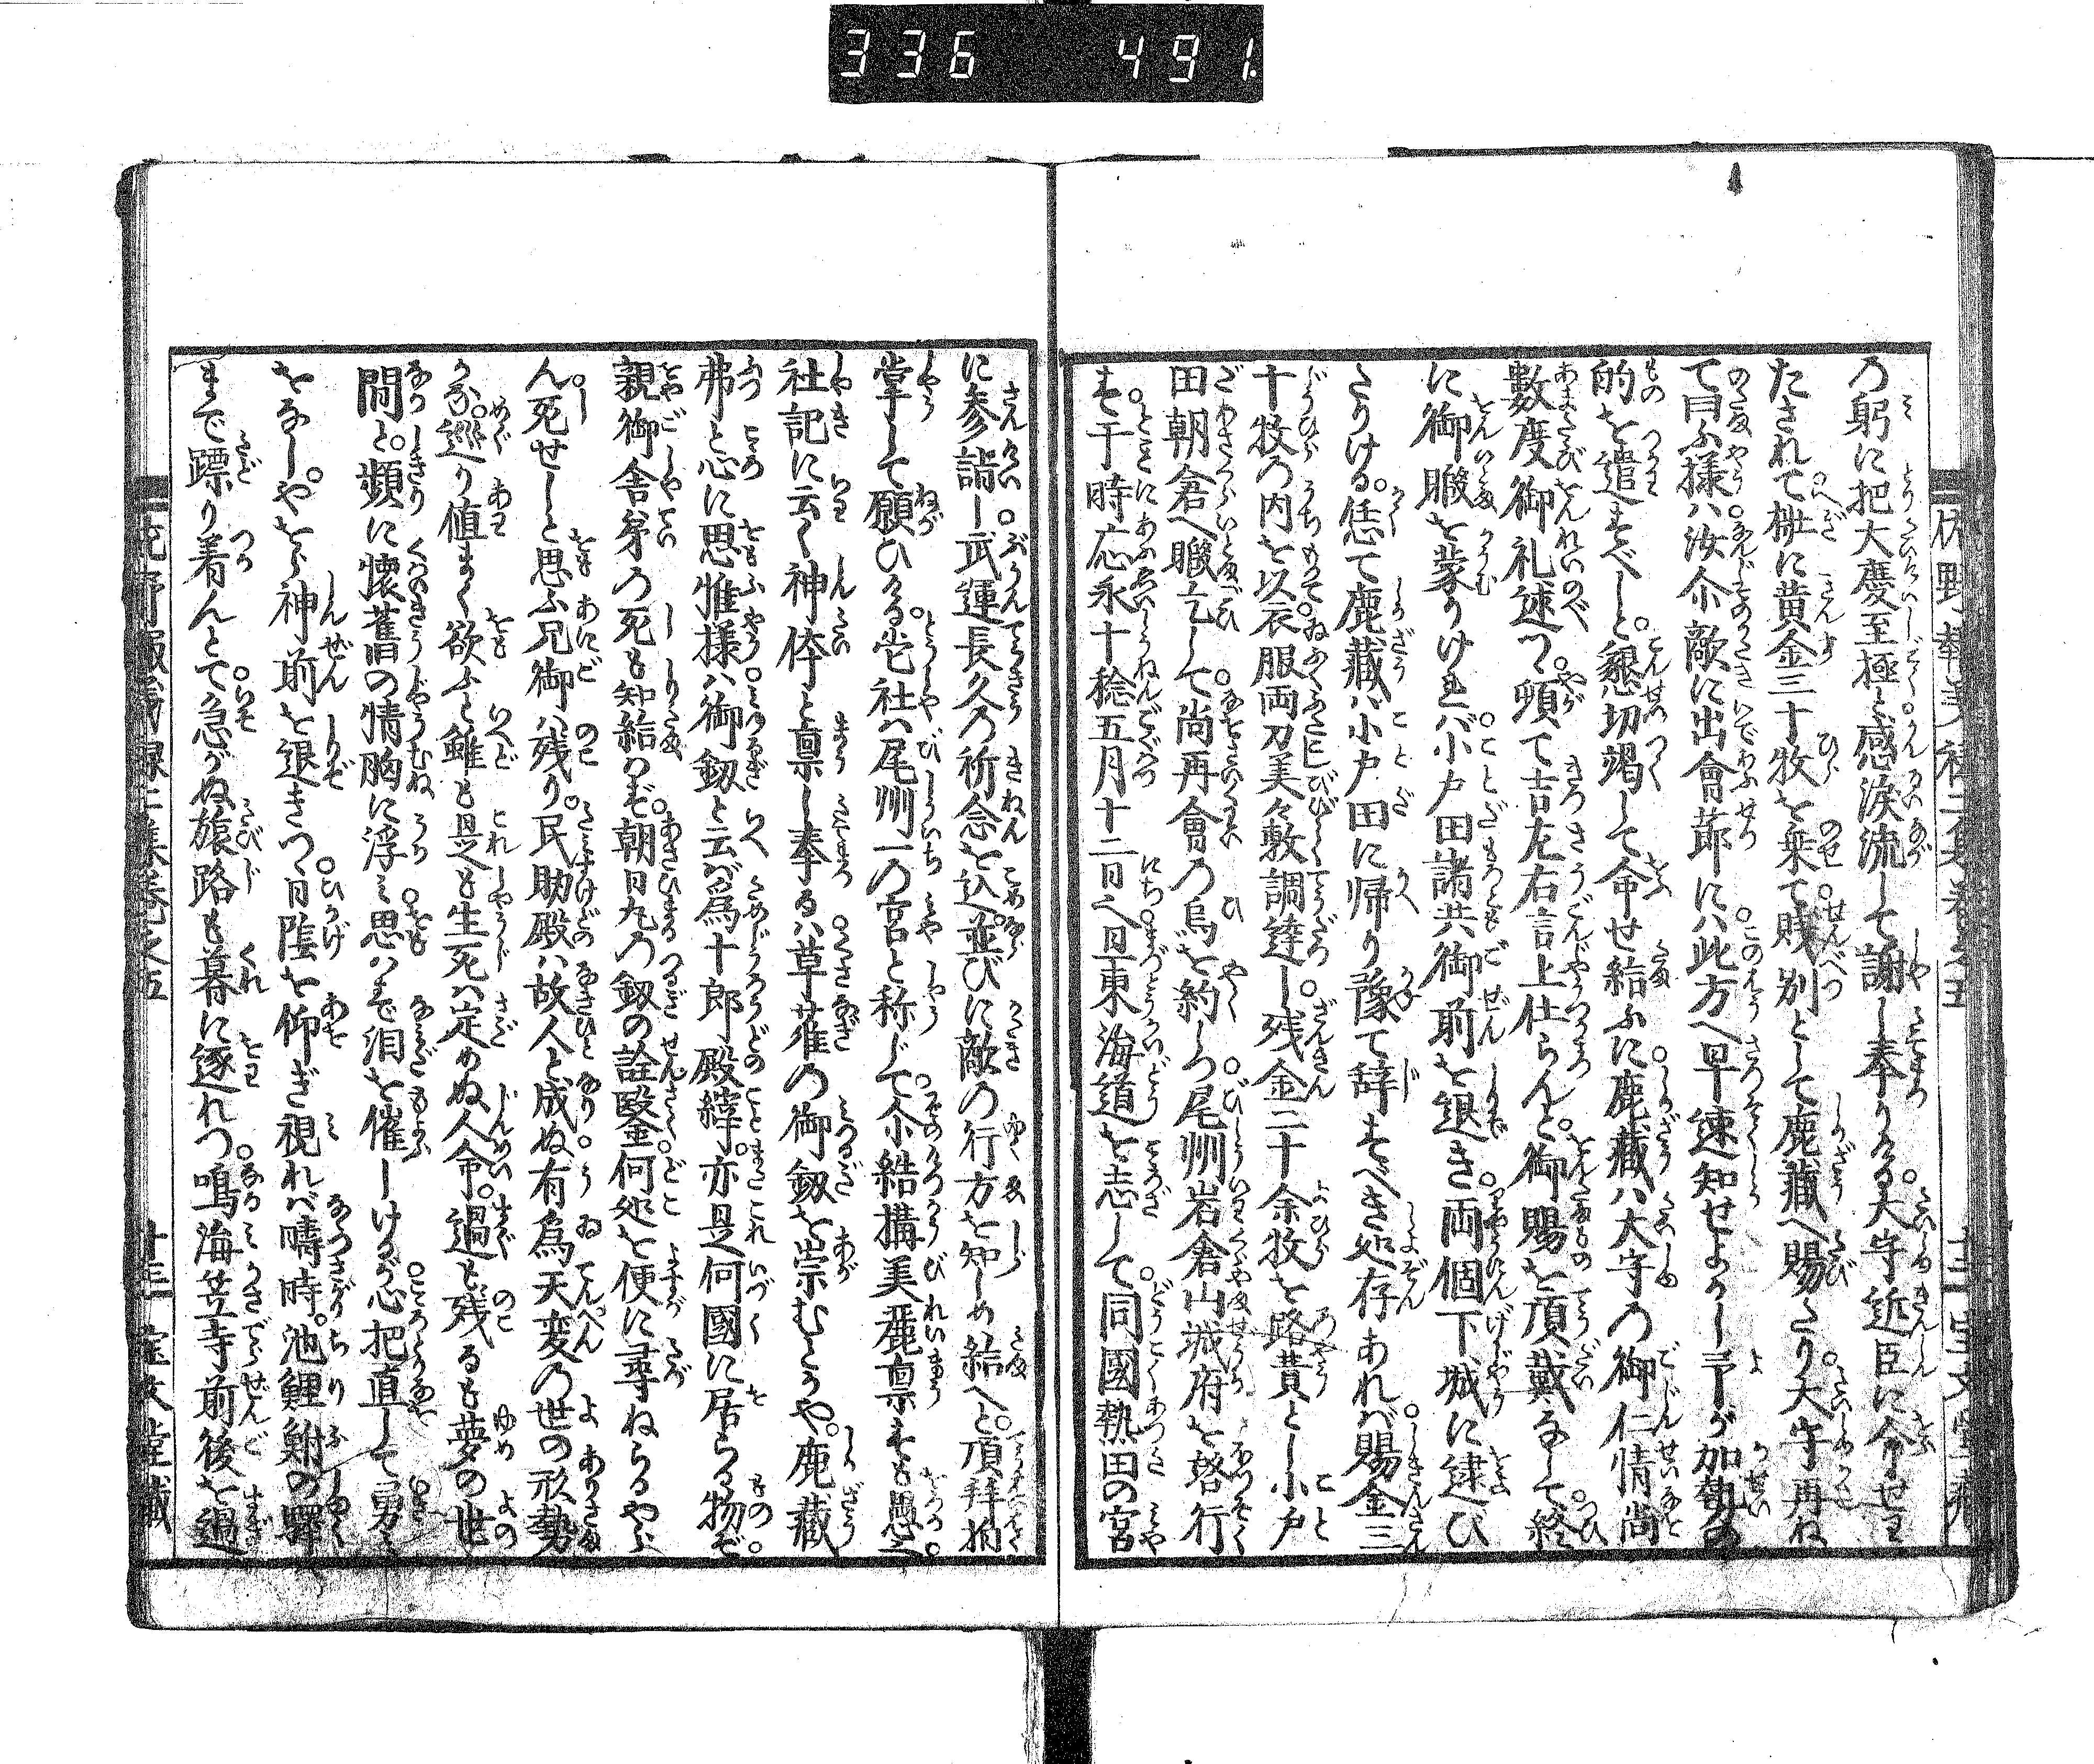 336 491
乃躬に把大慶至極と感涙流して謝し奉りける。大守近臣に命せ
たされて枡に黄金三十枚を乗て賎別として鹿藏へ賜さり大守再ね
て曰ふ様ハ汝尒敵に出會莭にハ此方へ早速知せよかし予が加勢の
的を遣すべしと懇切竭して命せ給ふに鹿藏ハ大守の御仁情尚
數度御礼述つ頓て吉左右言上仕らんと。御賜を頂戴なして終
に御暇を蒙りけれバ小戸田諸共御前を退き。両個下城に逮び
さりける。恁て鹿藏ハ小戸田に帰り豫て辞すべき処存あれバ賜金三
十枚の内を以衣服両刀美々敷調達し。残金二十余枚を路費とし小戸
田朝倉へ暇乞して尚再會の為を約しつ尾州岩倉山城府を啓行
す。于時応永十稔五月十二日先東海道を志して。同國熱田の宮
に参詣し武運長久の祈念を込。並びに敵の行方を知しめ給へと。頂拜拍
掌して願ひける。当社ハ尾州一の宮と称じて尒結搆美麗禀すも愚
社記に云く神体と禀し奉るハ草薙の御釼を崇むとかや。鹿藏
弗と心に思惟様ハ御釼と云バ為十郎殿緯。亦是何國に居らる物ぞ
親御舎弟の死も知給ハず。朝日丸の釼の詮鑿何処を便に尋ねらるやら
ん死せしと思ふ兄御ハ残り。民助殿ハ故人と成ぬ有為天変の世の形勢
かな。巡り値まく欲ふと雖も是も生死ハ定めぬ人命。過と残るも夢の世
間と。頻に懐舊の情胸に浮み思ハず泪を催しけるが心把直して勇み
をなし。やをら神前を退きつ。日陰を仰ぎ視れバ疇時。池鯉鮒の驛
まで蹕り着んとて急がぬ旅路も暮に逐れつ鳴海笠寺前後を過
十三